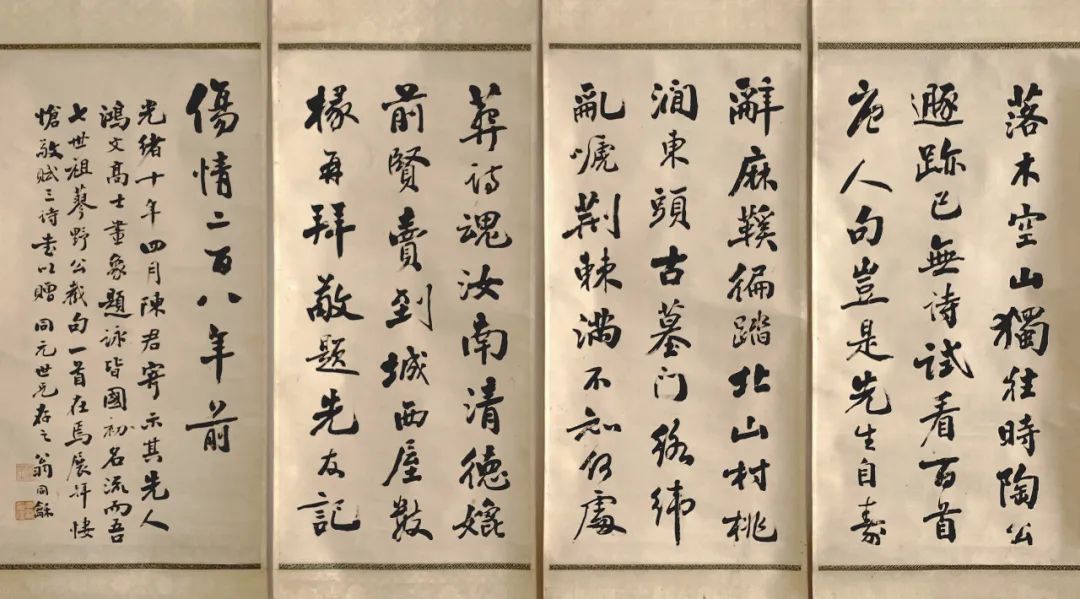 落木空山獨往時陶公
遯跡已無詩試看百首
唐人句豈是先生自
辭麻鞵徧踏北山村桃
澗東頭古墓門絡緯
亂嗁荆棘滿不知何處
葬詩魂汝南清德媲
前賢賣到城西屋數
椽再拜敬題先友記
傷情二百八年前
光緒十年四月陳君寄示其先人
鴻文高士畫象題詠皆國初名流而吾
七世祖蓼野公截句一首在焉展拜悽
愴敬賦三詩書以贈同元世兄存之 翁同龢